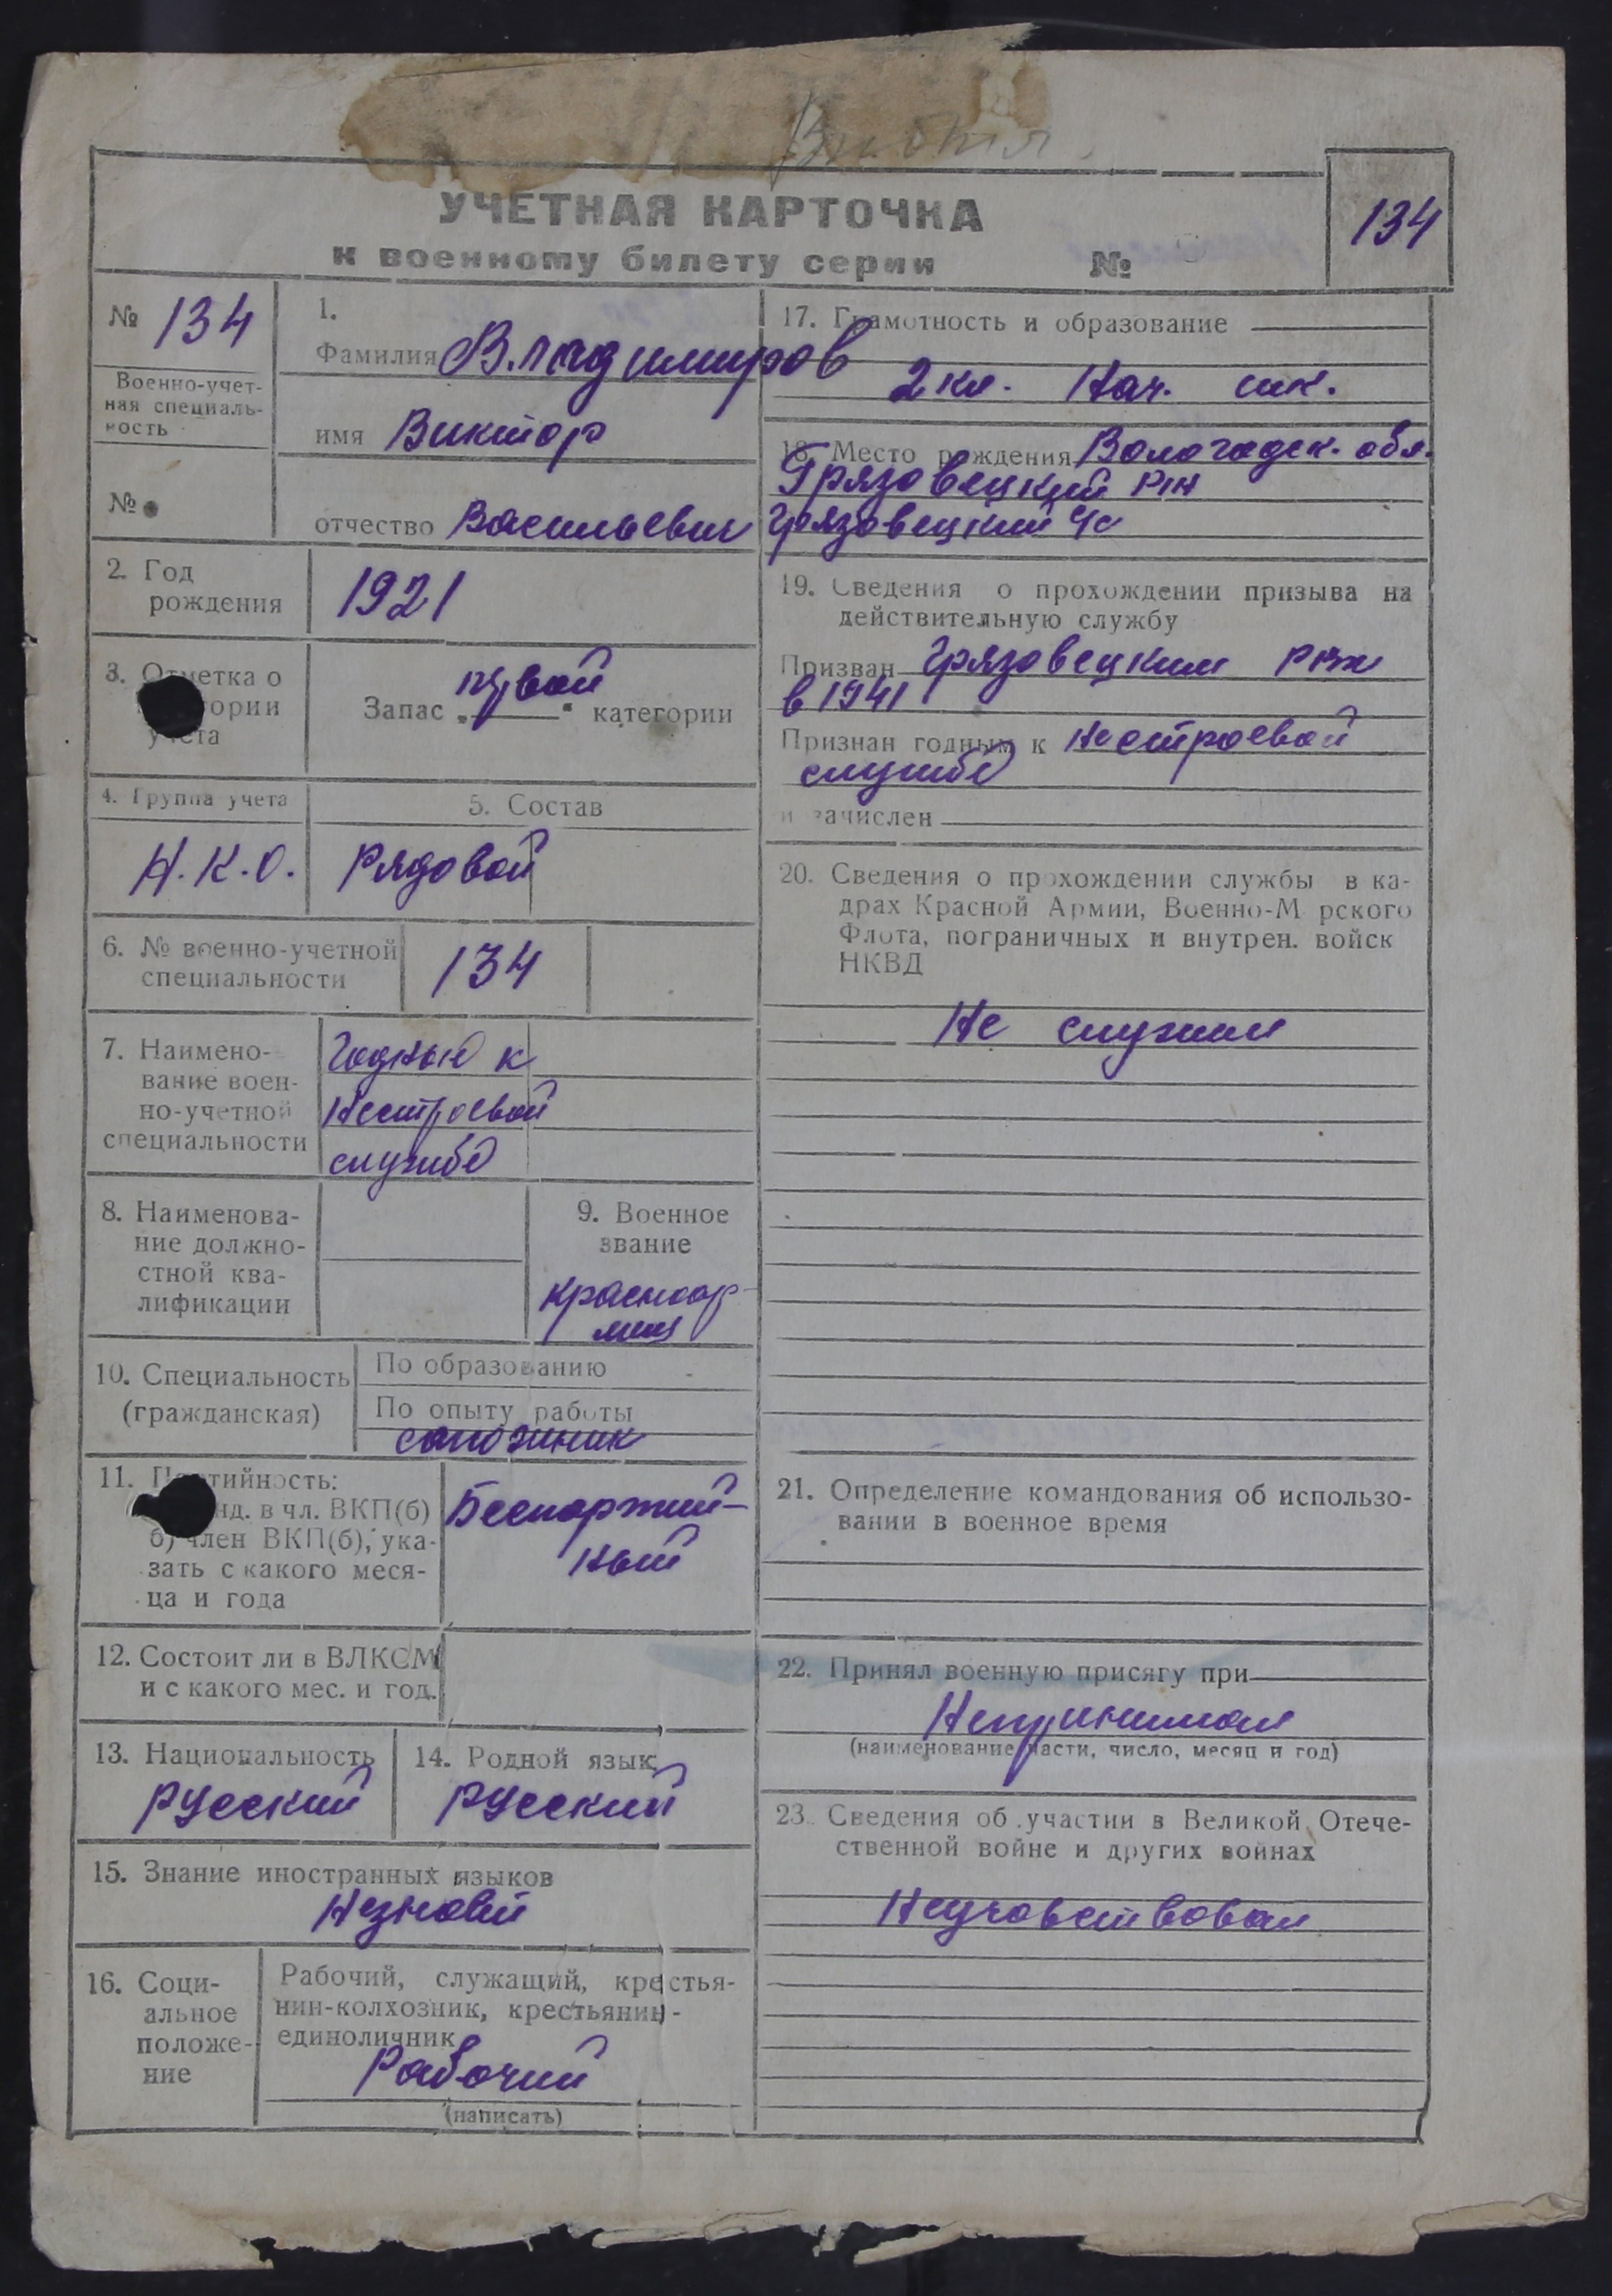 УЧЕТНАЯ КАРТОЧКА
к военному билету серии №
134
№ 134
Военно-учет-
ная специаль-
ность
№
1.
Фамилия Владимиров
имя Виктор
отчество Васильевич
2. Год
рождения
1921
3. Отметка о
категории
учета
Запас „первой“ категории
4. Группа учета
Н.К.О.
5. Состав
Рядовой
6. № военно-учетной
специальности
134
7. Наимено-
вание воен-
но-учетной
специальности
Годный к
нестроевой
службе
8. Наименова-
ние должно-
стной ква-
лификации
9. Военное
звание
красноар-
меец
10. Специальность
(гражданская)
По образованию
По опыту работы
сапожник
11. Партийность:
канд. в чл. ВКП(б)
б) член ВКП(б), ука-
зать с какого меся-
ца и года
Беспартий-
ный
12. Состоит ли в ВЛКСМ
и с какого мес. и год.
13. Национальность
русский
14. Родной язык
русский
15. Знание иностранных языков
Незнает
16. Соци-
альное
положе-
ние
Рабочий, служащий, крестья-
нин-колхозник, крестьянин-
единоличник
Рабочий
(написать)
17. Грамотность и образование
2 кл. Нач. шк.
18. Место рождения Вологодск. обл.
Грязовецкий р-н
Грязовецкий с/с
19. Сведения о прохождении призыва на
действительную службу
Призван Грязовецким РВК
в 1941
Признан годным к нестроевой
службе
и зачислен
20. Сведения о прохождении службы в ка-
драх Красной Армии, Военно-Морского
Флота, пограничных и внутрен. войск
НКВД
Не служил
21. Определение командования об использо-
вании в военное время
22. Принял военную присягу при
Непринимал
(наименование части, число, месяц и год)
23. Сведения об участии в Великой Отече-
ственной войне и других войнах
Неучавствовал